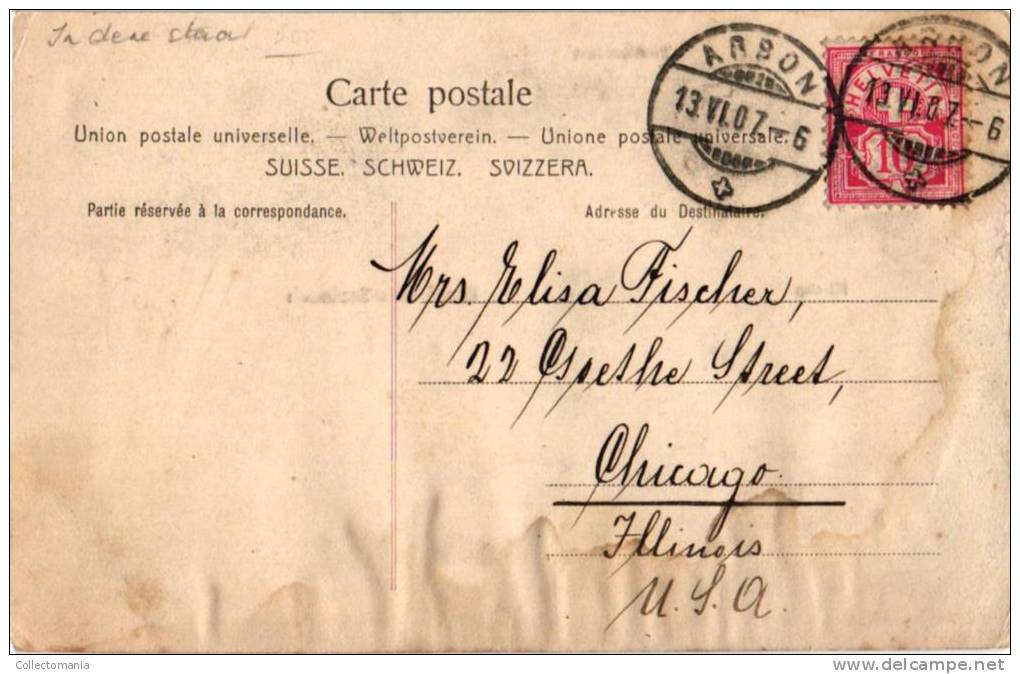 In dene staat
Carte postale
Union postale universelle. — Weltpostverein. — Unione postale universale.
SUISSE. SCHWEIZ. SVIZZERA.
Partie réservée à la correspondance.
Adresse du Destinataire.
ARBON
13.VI.07.-6
HELVETIA
10
ARBON
13.VI.07.-6
Mrs. Elisa Fischer,
22 Goethe Street,
Chicago
Illinois
U.S.A.
Collectomania
delcampe.net